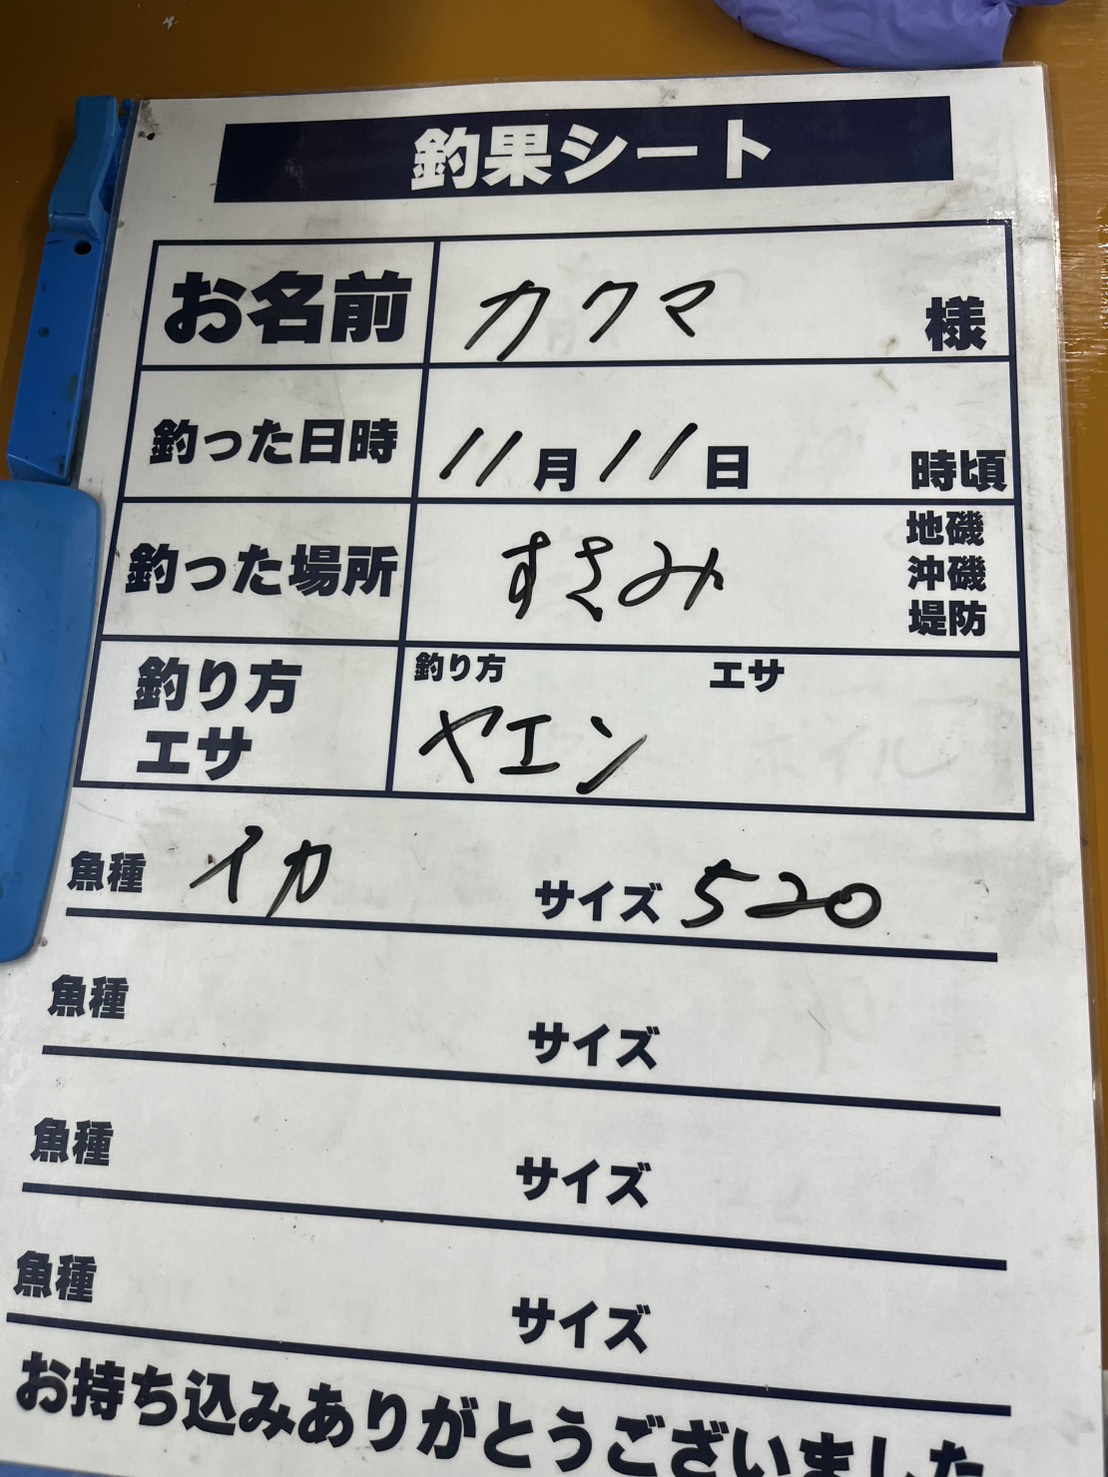 釣果シート
お名前 カクマ 様
釣った日時 11月11日 時頃
釣った場所 すさみ 地磯
沖磯
堤防
釣り方 エサ
釣り方
エサ
ヤエン
魚種 イカ サイズ 520
魚種 サイズ
魚種 サイズ
魚種 サイズ
お持ち込みありがとうございました